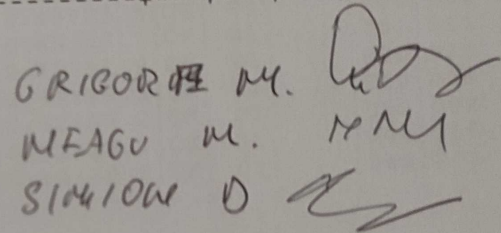 GRIGORE M.
NEAGU M.
SIMION D